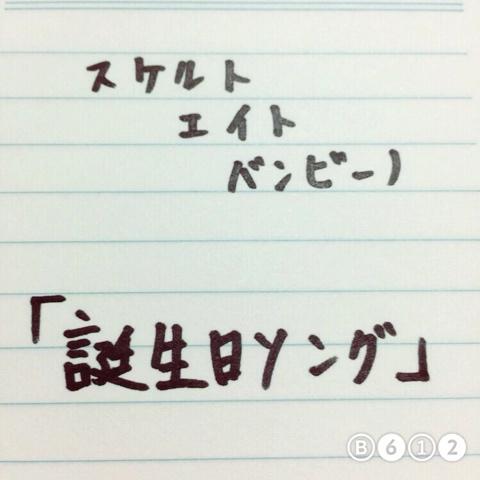 スケルト
エイト
バンビーノ
「誕生日ソング」
B612